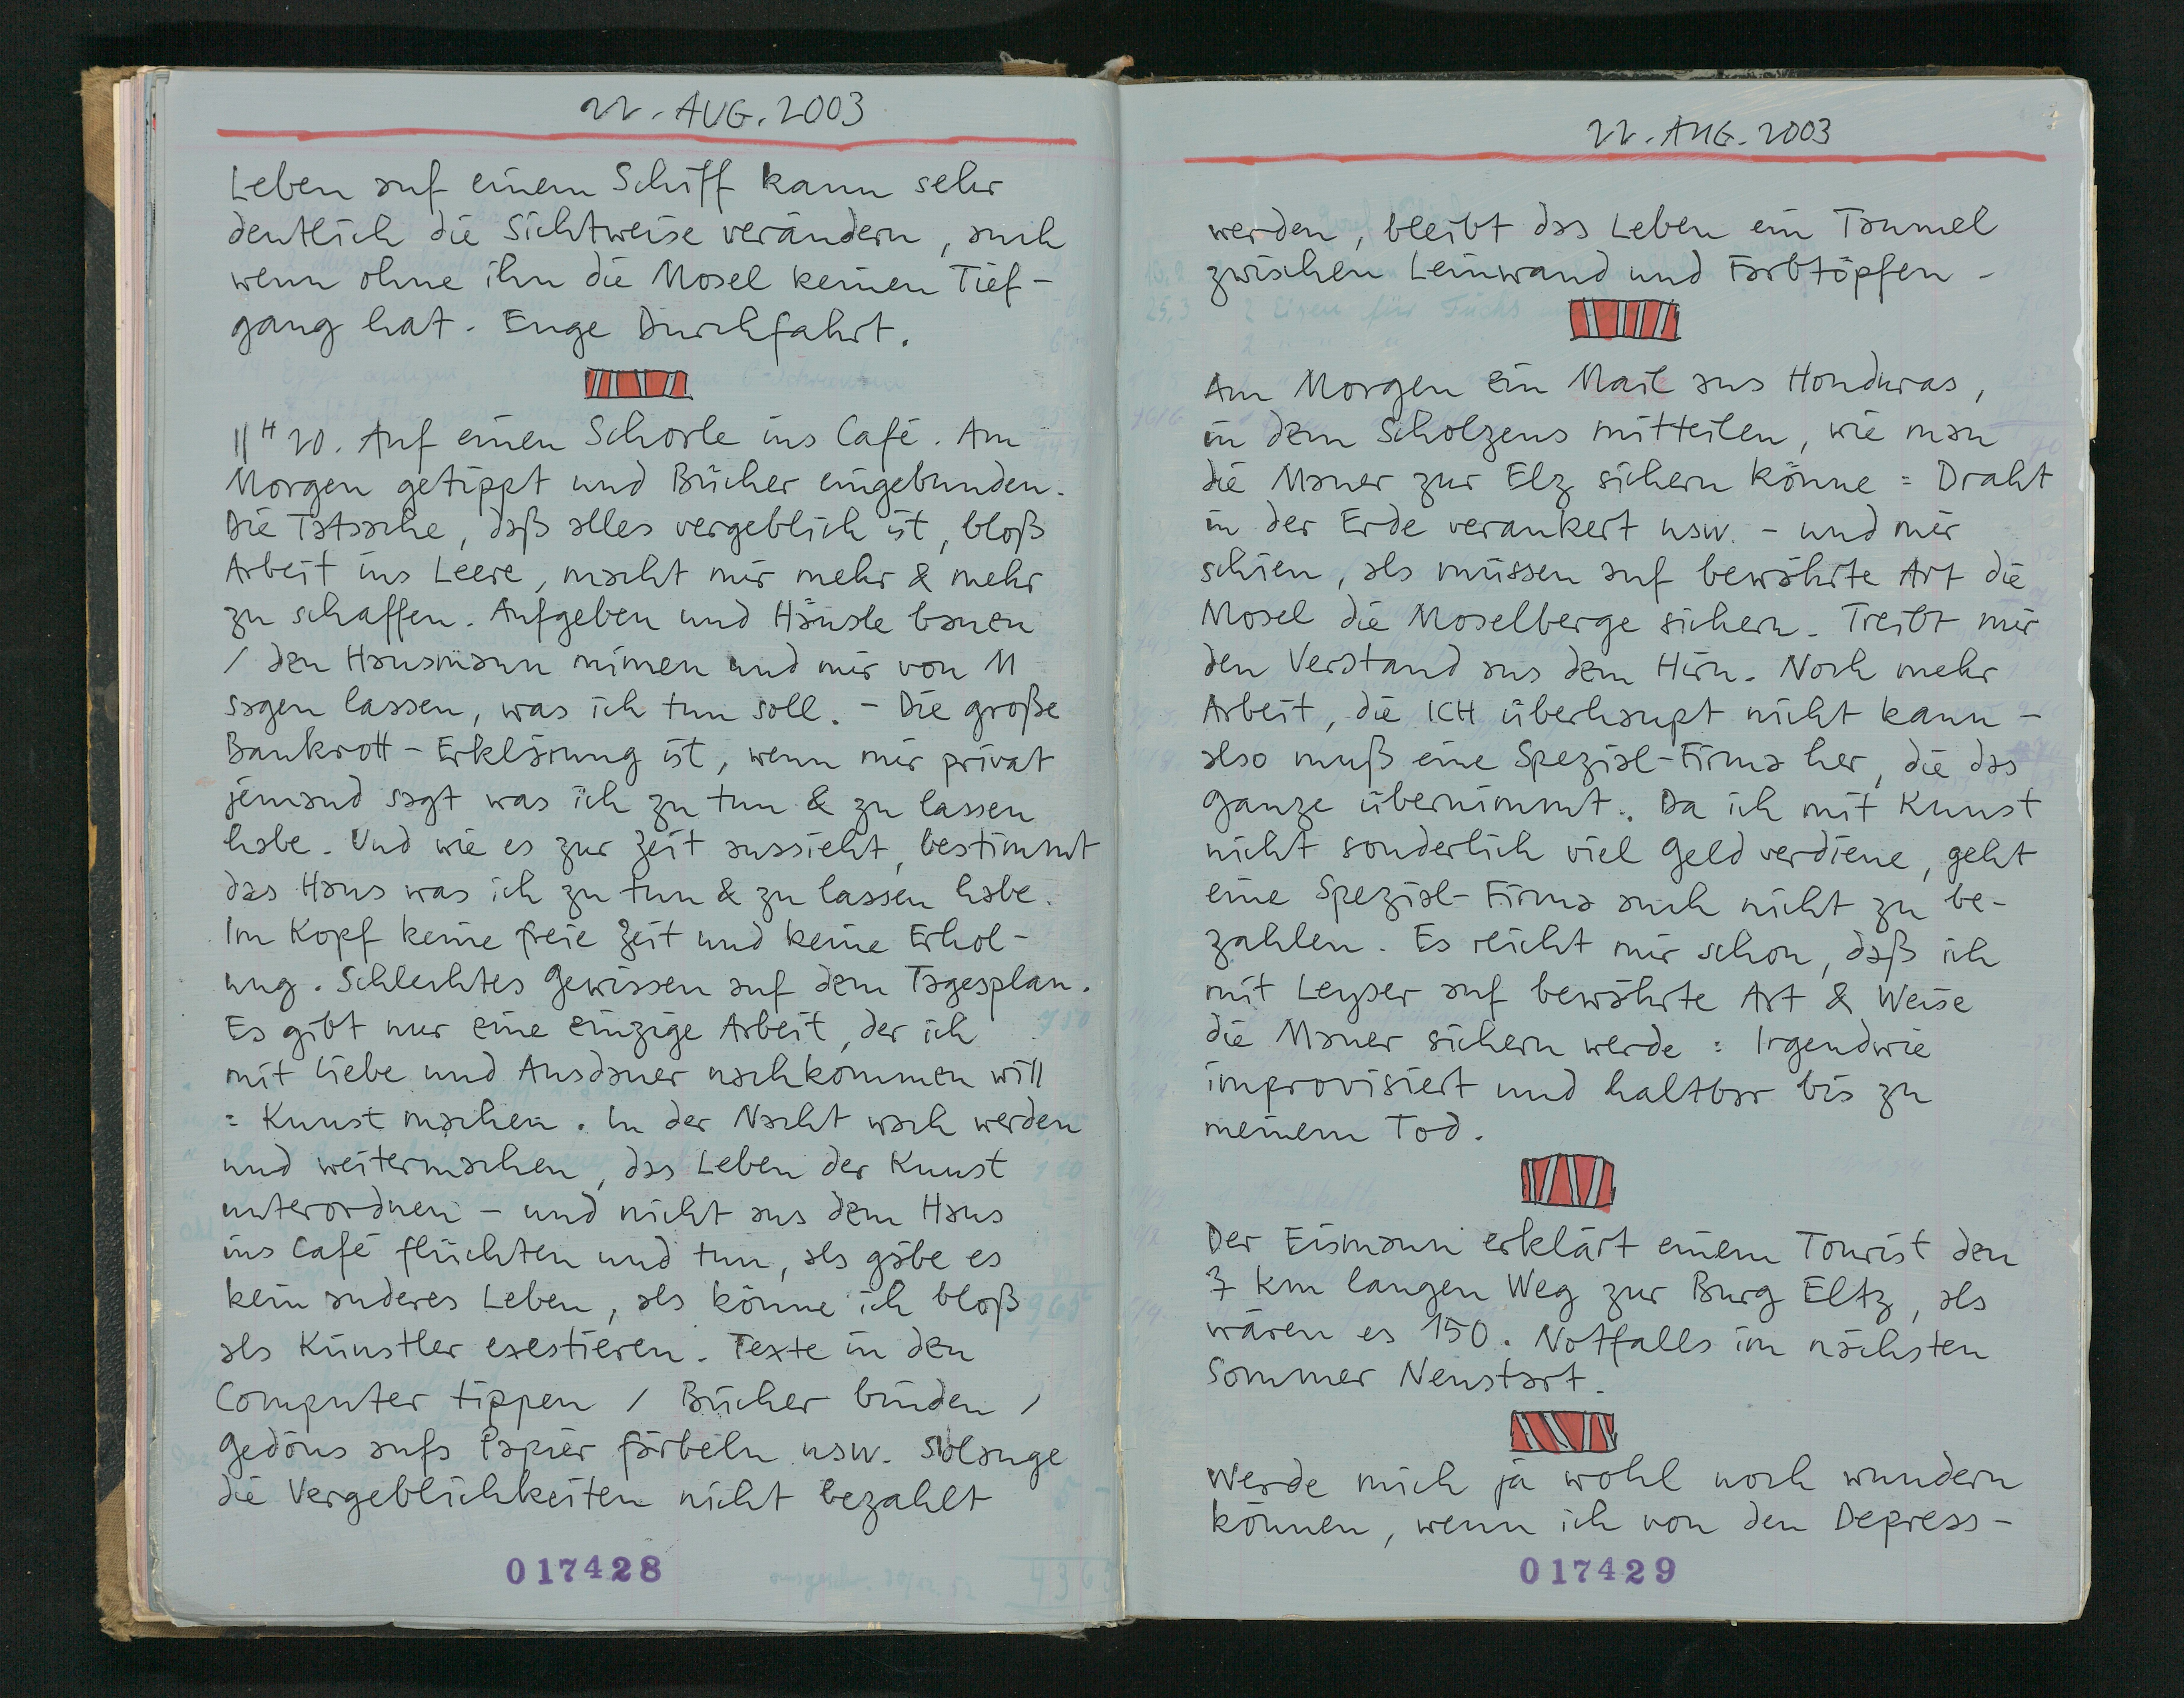 22. AUG. 2003
Leben auf einem Schiff kann sehr
deutlich die Sichtweise verändern, auch
wenn ohne ihn die Mosel keinen Tief-
gang hat. Enge Durchfahrt.
11 H 20. Auf einen Schorle ins Café. Am
Morgen getippt und Bücher eingebunden.
Die Tatsache, daß alles vergeblich ist, bloß
Arbeit ins Leere, macht mir mehr & mehr
zu schaffen. Aufgeben und Häusle bauen
/ den Hausmann mimen und mir von M
sagen lassen, was ich tun soll. - Die große
Bankrott-Erklärung ist, wenn mir privat
jemand sagt was ich zu tun & zu lassen
habe. Und wie es zur Zeit aussieht, bestimmt
das Haus was ich zu tun & zu lassen habe.
Im Kopf keine freie Zeit und keine Erhol-
ung. Schlechtes Gewissen auf dem Tagesplan.
Es gibt nur eine einzige Arbeit, der ich
mit Liebe und Ausdauer nachkommen will
= Kunst machen. In der Nacht wach werden
und weitermachen, das Leben der Kunst
unterordnen - und nicht aus dem Haus
ins Café flüchten und tun, als gäbe es
kein anderes Leben, als könne ich bloß
als Künstler exestieren. Texte in den
Computer tippen / Bücher binden /
Gedöns aufs Papier färbeln usw. Solange
die Vergeblichkeiten nicht bezahlt
017428
22. AUG. 2003
werden, bleibt das Leben ein Taumel
zwischen Leinwand und Farbtöpfen -
Am Morgen ein Mail aus Honduras,
in dem Scholzens mitteilen, wie man
die Mauer zur Elz sichern könne = Draht
in der Erde verankert usw. - und mir
schien, als müssen auf bewährte Art die
Mosel die Moselberge sichern. Treibt mir
den Verstand aus dem Hirn. Noch mehr
Arbeit, die ICH überhaupt nicht kann -
also muß eine Spezial-Firma her, die das
Ganze übernimmt. Da ich mit Kunst
nicht sonderlich viel Geld verdiene, geht
eine Spezial-Firma auch nicht zu be-
zahlen. Es reicht mir schon, daß ich
mit Leyser auf bewährte Art & Weise
die Mauer sichern werde = Irgendwie
improvisiert und haltbar bis zu
meinem Tod.
Der Eismann erklärt einem Tourist den
7 km langen Weg zur Burg Eltz, als
wären es 150. Notfalls im nächsten
Sommer Neustart.
Werde mich ja wohl noch wundern
können, wenn ich von den Depress-
017429